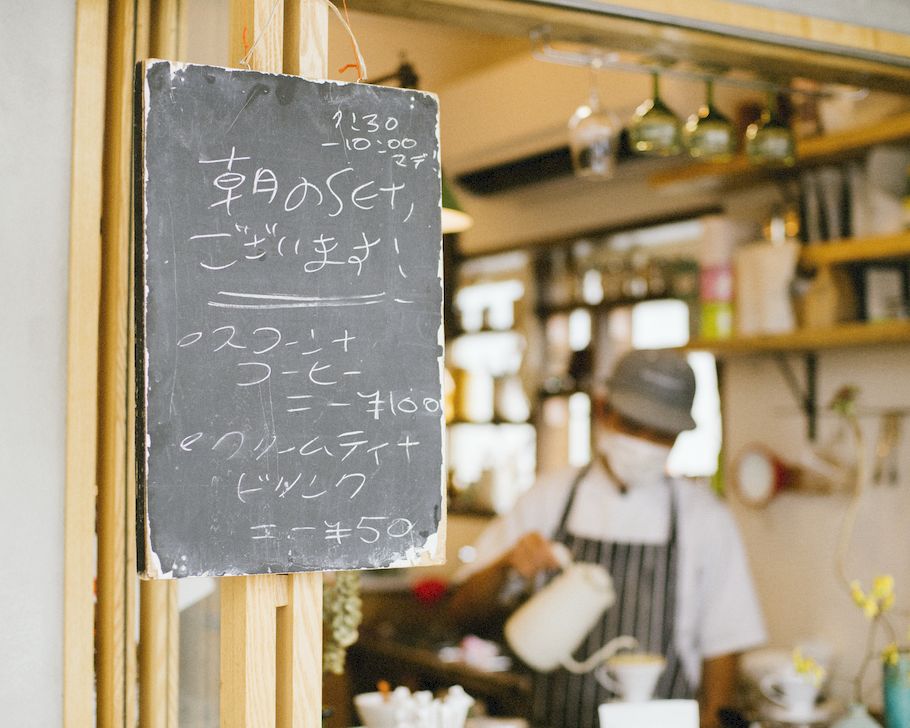 1:30
-10:00
マデ
朝のSET,
ございます!
スコーン+
コーヒー
=-¥100
クリームティ+
ドリンク
=-¥50